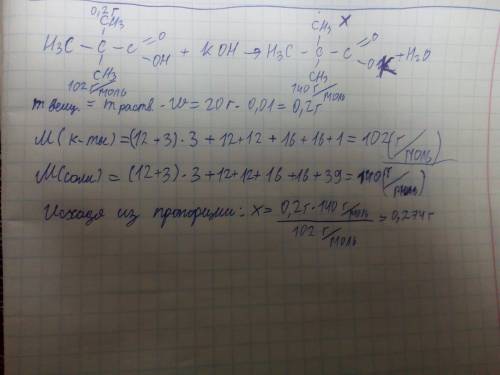 0,2г x
CH₃ CH₃
H₃C – C – C = O + KOH → H₃C – C – C = O + H₂O
OH OK
CH₃ CH₃
102 г/моль 140 г/моль
m вещ. = m раств · W = 20г · 0,01 = 0,2г
M( к-ты) = (12+3)·3 + 12+12 + 16+16+1 = 102(г/моль)
M(соли) = (12+3)·3 + 12+12+16+16+39 = 140(г/моль)
Исходя из пропорции: x = 0,2г · 140 г/моль / 102 г/моль = 0,274г